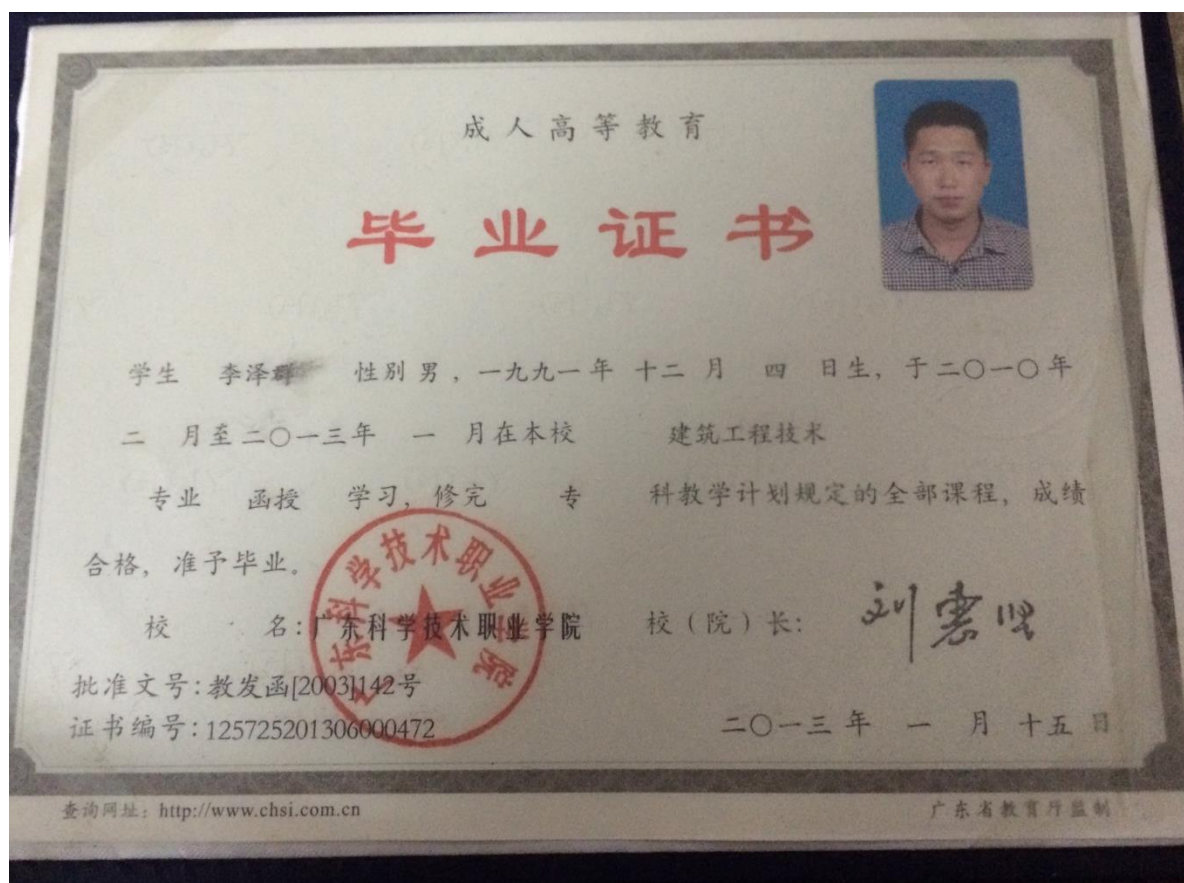 成人高等教育
毕业证书
学生 李泽群 性别 男，一九九一年 十二 月 四 日生，于二〇一〇年
二 月至二〇一三年 一 月在本校 建筑工程技术
专业 函授 学习，修完 专 科教学计划规定的全部课程，成绩
合格，准予毕业。
校 名：广东科学技术职业学院 校（院）长：
批准文号：教发函[2003]142号
证书编号：125725201306000472 二〇一三年 一 月 十五 日
查询网址：http://www.chsi.com.cn 广东省教育厅监制
广东科学技术职业学院